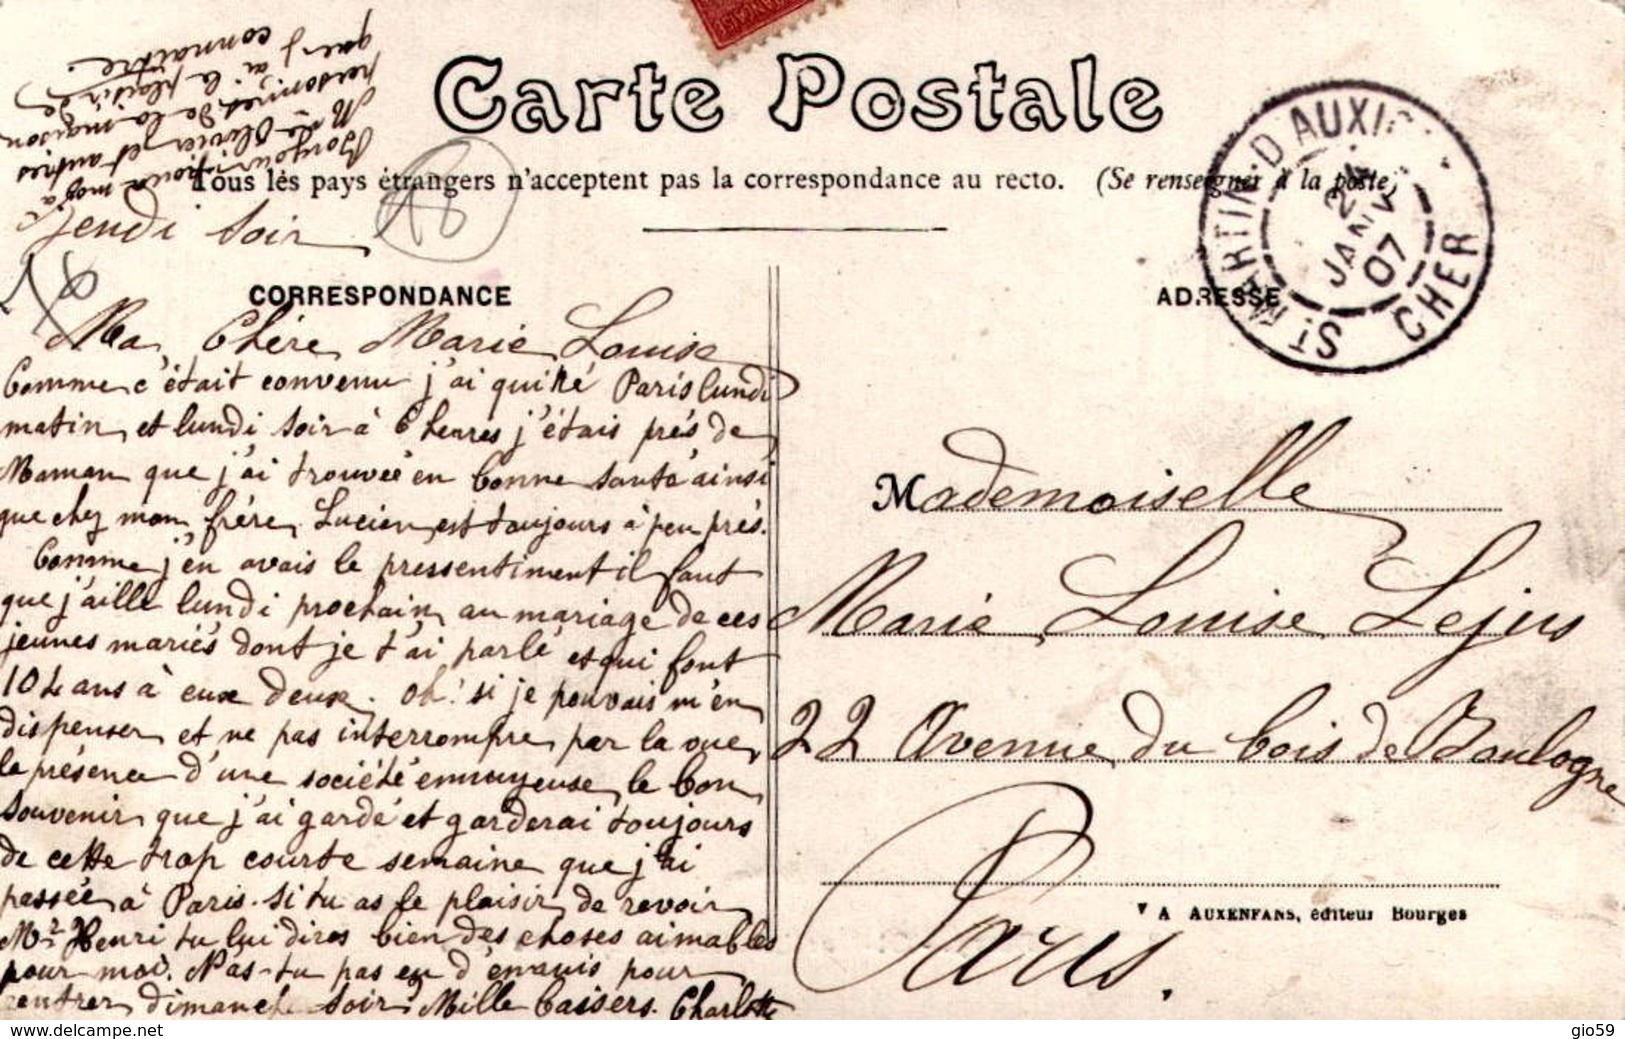 Carte Postale
Tous lés pays étrangers n'acceptent pas la correspondance au recto. (Se renseigner à la poste)
Jeudi soir
CORRESPONDANCE
Ma Chère Marie Louise
Comme c'était convenu j'ai quitté Paris lundi
matin et lundi soir à 6 heures j'étais près de
Maman que j'ai trouvée en bonne santé ainsi
que chez mon frère, Lucien est toujours à peu près.
Comme j'en avais le pressentiment il faut
que j'aille lundi prochain au mariage de ces
jeunes mariés dont je t'ai parlé et qui font
104 ans à eux deux. Oh! si je pouvais m'en
dispenser et ne pas interrompre par la vue,
la présence d'une société ennuyeuse, le bon
souvenir que j'ai gardé et garderai toujours
de cette trop courte semaine que j'ai
passée à Paris. Si tu as le plaisir de revoir
Mr Henri tu lui diras bien des choses aimables
pour moi. N'as-tu pas eu d'ennuis pour
rentrer dimanche soir? Mille baisers. Charlotte
Bonjour pour moi à
Mr Olivier et autres
personnes de la maison
que j'ai le plaisir de
connaître.
18
18
ADRESSE
ST MARTIN-D'AUXIG
24
JANV
07
CHER
Mademoiselle
Marie Louise Lejus
22 Avenue du bois de Boulogne
Paris.
A AUXENFANS, éditeur Bourges
www.delcampe.net
gio59